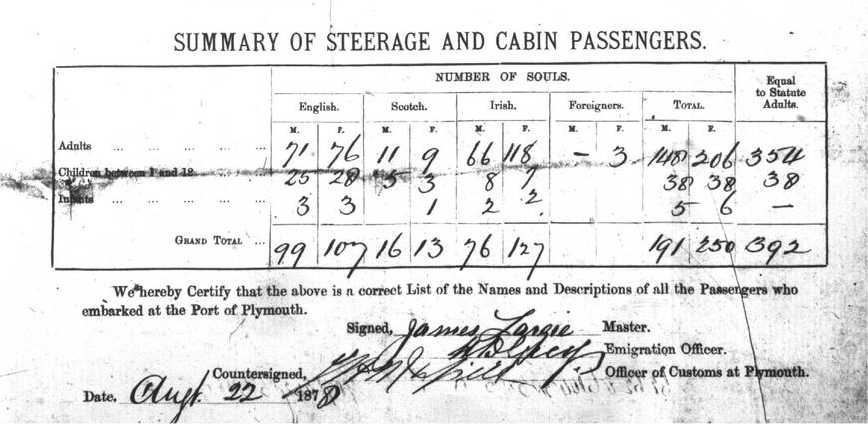 SUMMARY OF STEERAGE AND CABIN PASSENGERS.
NUMBER OF SOULS. Equal to Statute Adults.
English. Scotch. Irish. Foreigners. TOTAL.
M. F. M. F. M. F. M. F. M. F.
Adults ... ... ... ... ... 71 76 11 9 66 118 – 3 148 206 354
Children between 1 and 12 ... ... 25 28 5 3 8 7 38 38 38
Infants ... ... ... ... ... 3 3 1 2 2 5 6 –
GRAND TOTAL ... 99 107 16 13 76 127 191 250 392
We hereby Certify that the above is a correct List of the Names and Descriptions of all the Passengers who
embarked at the Port of Plymouth.
Signed, James Largie Master.
Emigration Officer.
Countersigned, Officer of Customs at Plymouth.
Date, Augt. 22 1878